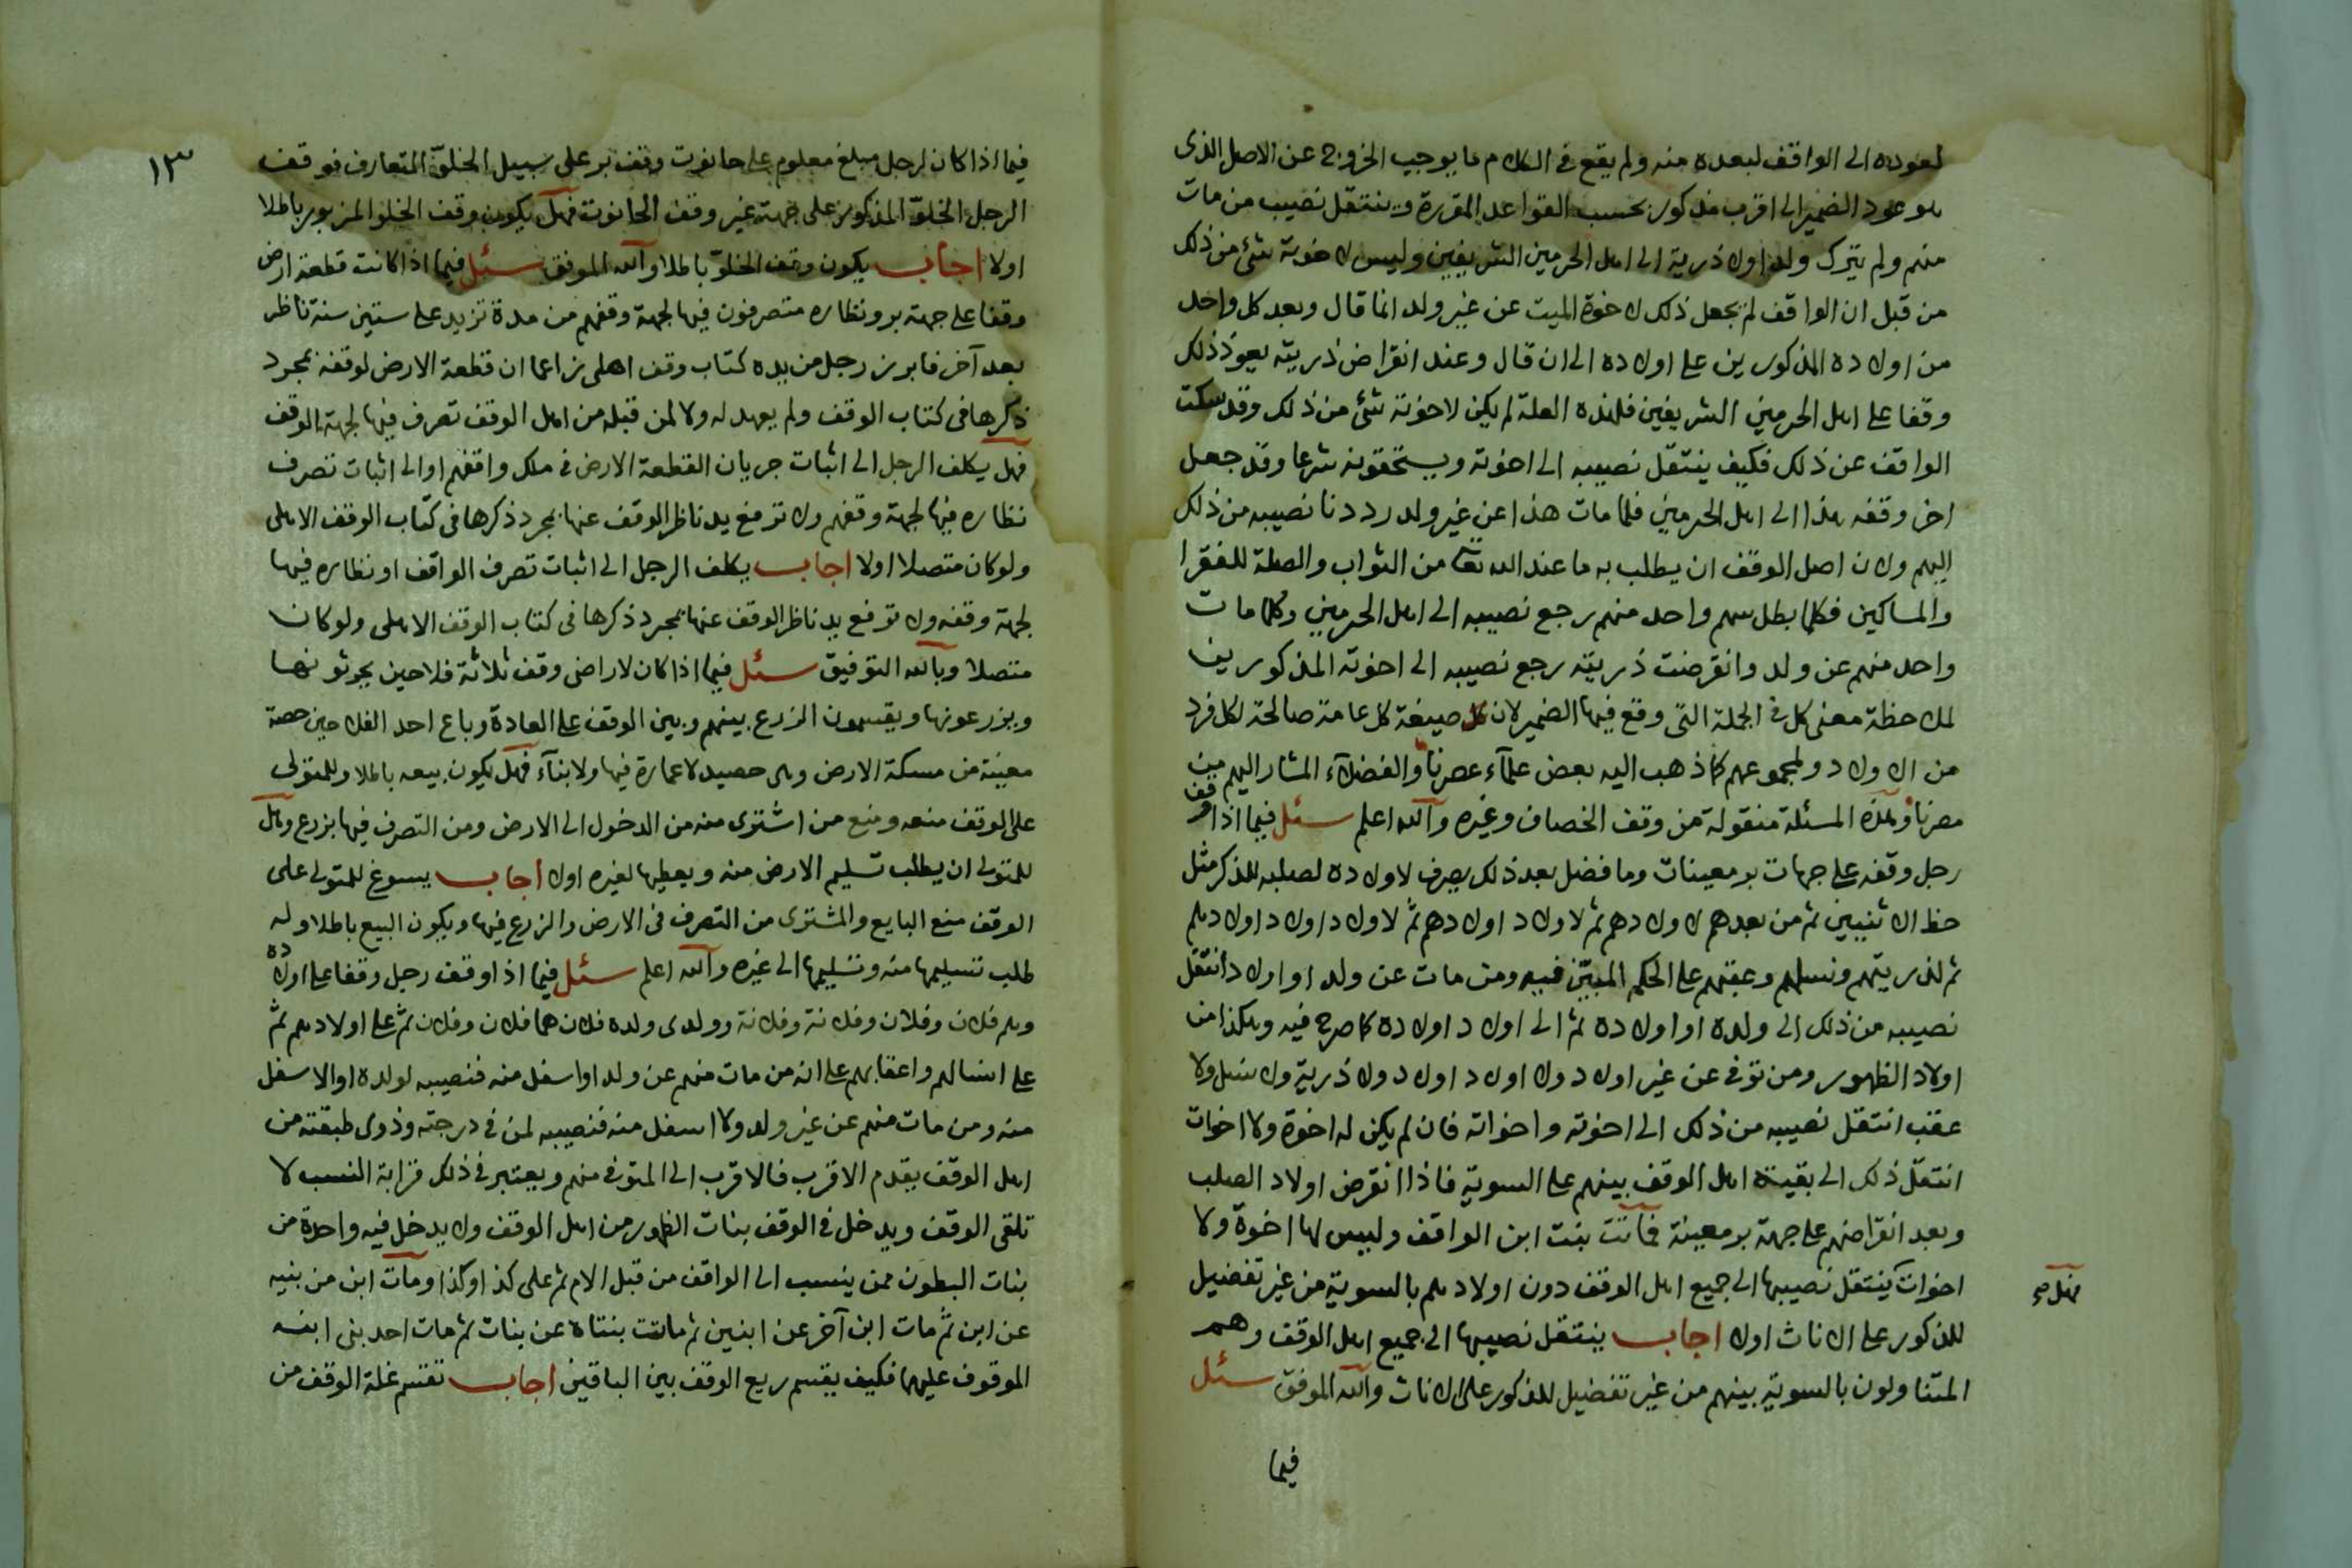 لعوده الى الواقف لبعده منه ولم يقع في الكلام ما يوجب الخروج عن الاصل الذى
هو عود الضمير الى اقرب مذكور بحسب القواعد المقررة وينتقل نصيب من مات
منهم ولم يترك ولدا ولا ذرية الى اهل الحرمين الشريفين وليس لاخوته شئ من ذلك
من قبل ان الواقف لم يجعل ذلك لاخوة الميت عن غير ولد انما قال وبعد كل واحد
من اولاده المذكورين على اولاده الى ان قال وعند انقراض ذريته يعود ذلك
وقفا على اهل الحرمين الشريفين فلهذه العلة لم يكن لاخوته شئ من ذلك وقد سكت
الواقف عن ذلك فكيف ينتقل نصيبه الى اخوته ويستحقونه شرعا وقد جعل
اخر وقفه هذا الى اهل الحرمين فلما مات هذا عن غير ولد رددنا نصيبه من ذلك
اليهم ولان اصل الوقف ان يطلب به ما عند الله تعا من الثواب والصلة للفقرا
والمساكين فكلما بطل سهم واحد منهم رجع نصيبه الى اهل الحرمين وكلما مات
واحد منهم عن ولد وانقرضت ذريته رجع نصيبه الى اخوته المذكورين
لملاحظة معنى كل في الجملة التى وقع فيها الضمير لان كل صيغة كل عامة صالحة لكل فرد
من الاولاد ولمجموعهم كما ذهب اليه بعض علمآء عصرنا والفضلآء المشار اليهم من
مصرنا وهذه المسئلة منقولة من وقف الخصاف وغيره والله اعلم سئل فيما اذا وقف
رجل وقفه على جهات بر معينات وما فضل بعد ذلك يصرف لاولاده لصلبه للذكر مثل
حظ الانثيين ثم من بعدهم لاولادهم ثم لاولاد اولادهم ثم لاولاد اولاد اولادهم
ثم لذريتهم ونسلهم وعقبهم على الحكم المبين فيه ومن مات عن ولد او اولاد انتقل
نصيبه من ذلك الى ولده او اولاده ثم الى اولاد اولاده كما صرح فيه وهكذا من
اولاد الظهور ومن توفى عن غير اولاد ولا اولاد اولاد ولا ذرية ولا نسل ولا
عقب انتقل نصيبه من ذلك الى اخوته واخواته فان لم يكن له اخوة ولا اخوات
انتقل ذلك الى بقية اهل الوقف بينهم على السوية فاذا انقرض اولاد الصلب
وبعد انقراضهم على جهة بر معينة فماتت بنت ابن الواقف وليس لها اخوة ولا
اخوات ينتقل نصيبها الى جميع اهل الوقف دون اولادهم بالسوية من غير تفضيل
فهل صح
للذكور على الاناث اولا اجاب ينتقل نصيبها الى جميع اهل الوقف وهم
المتناولون بالسوية بينهم من غير تفضيل للذكور على الاناث والله الموفق سئل
فيما
١٣
فيما اذا كان لرجل مبلغ معلوم على حانوت وقف بر على سبيل الخلوّ المتعارف فوقف
الرجل الخلوّ المذكور على جهة غير وقف الحانوت فهل يكون وقف الخلو المزبور باطلا
اولا اجاب يكون وقف الخلوّ باطلا والله الموفق سئل فيما اذا كانت قطعة ارض
وقفا على جهة بر ونظاره متصرفون فيها لجهة وقفهم من مدة تزيد على ستين سنة ناظر
بعد آخر فابرز رجل من يده كتاب وقف اهلى زاعما ان قطعة الارض لوقفه بمجرد
ذكرها في كتاب الوقف ولم يعهد له ولا لمن قبله من اهل الوقف تصرف فيها لجهة الوقف
فهل يكلف الرجل الى اثبات جريان القطعة الارض في ملك واقفهم او الى اثبات تصرف
نظاره فيها لجهة وقفهم ولا ترفع يد ناظر الوقف عنها بمجرد ذكرها في كتاب الوقف الاهلى
ولو كان متصلا اولا اجاب يكلف الرجل الى اثبات تصرف الواقف او نظاره فيها
لجهة وقفه ولا ترفع يد ناظر الوقف عنها بمجرد ذكرها في كتاب الوقف الاهلى ولو كان
متصلا وبالله التوفيق سئل فيما اذا كان لاراضى وقف ثلاثة فلاحين يحرثونها
ويزرعونها ويقسمون الزرع بينهم وبين الوقف على العادة وباع احد الفلاحين حصة
معينة من مسكة الارض وهى حصيد لا عمارة فيها ولا بنآء فهل يكون بيعه باطلا وللمتولى
على الوقف منعه ومنع من اشترى منه من الدخول الى الارض ومن التصرف فيها بزرع وهل
للمتولى ان يطلب تسليم الارض منه ويعطيها لغيره اولا اجاب يسوغ للمتولى على
الوقف منع البايع والمشترى من التصرف في الارض والزرع فيها ويكون البيع باطلا وله
طلب تسليمها منه وتسليمها الى غيره والله اعلم سئل فيما اذا وقف رجل وقفا على اولاده
وهم فلان وفلان وفلانة وفلانة وولدى ولده فلان هما فلان وفلان ثم على اولادهم ثم
على انسالهم واعقابهم على انه من مات منهم عن ولد او اسفل منه فنصيبه لولده او الاسفل
منه ومن مات منهم عن غير ولد ولا اسفل منه فنصيبه لمن في درجته وذوى طبقته من
اهل الوقف يقدم الاقرب فالاقرب الى المتوفى منهم ويعتبر في ذلك قرابة النسب لا
تلقى الوقف ويدخل في الوقف بنات الظهور من اهل الوقف ولا يدخل فيه واحدة من
بنات البطون ممن ينسب الى الواقف من قبل الام ثم على كذا وكذا ومات ابن من بنيه
عن ابن ثم مات ابن آخر عن ابنين ثم ماتت بنتاه عن بنات ثم مات احد بنى ابنه
الموقوف عليهما فكيف يقسم ريع الوقف بين الباقين اجاب تقسم غلة الوقف من